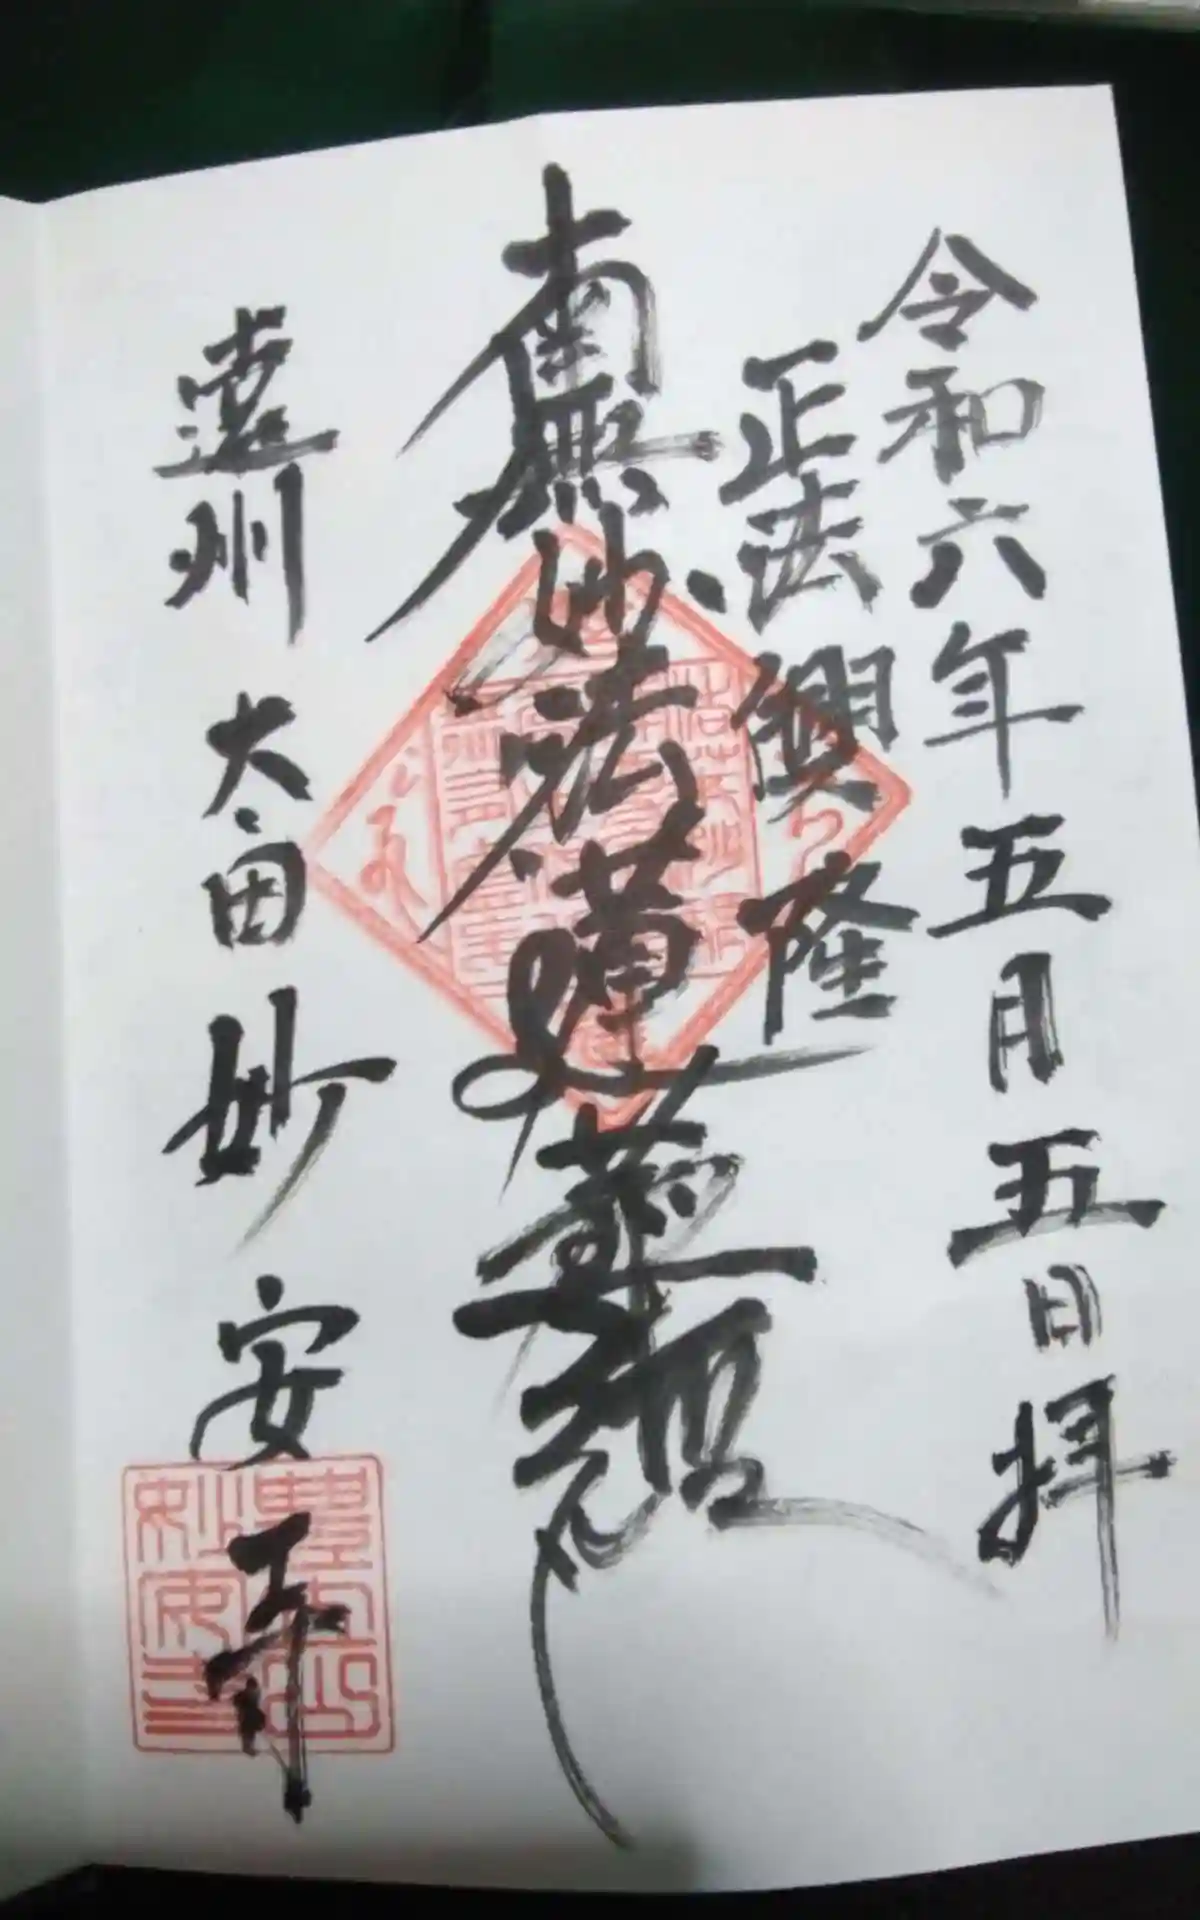 令和六年五月五日拝
正法興隆
南無妙法蓮華経
遠州 太田 妙安寺